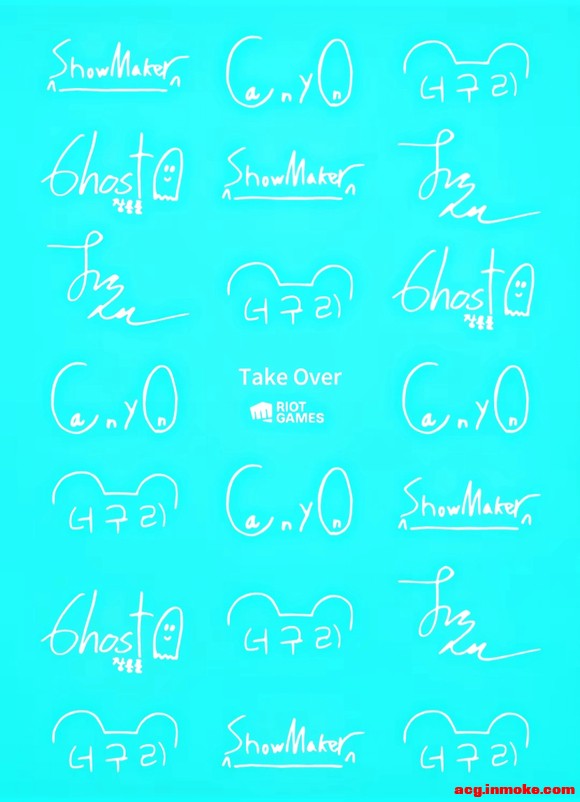 ShowMaker
Canyon
너구리
Ghost
ShowMaker
너구리
Ghost
Canyon
Take Over
RIOT
GAMES
Canyon
너구리
Canyon
ShowMaker
Ghost
너구리
너구리
ShowMaker
너구리
acg.inmoke.com